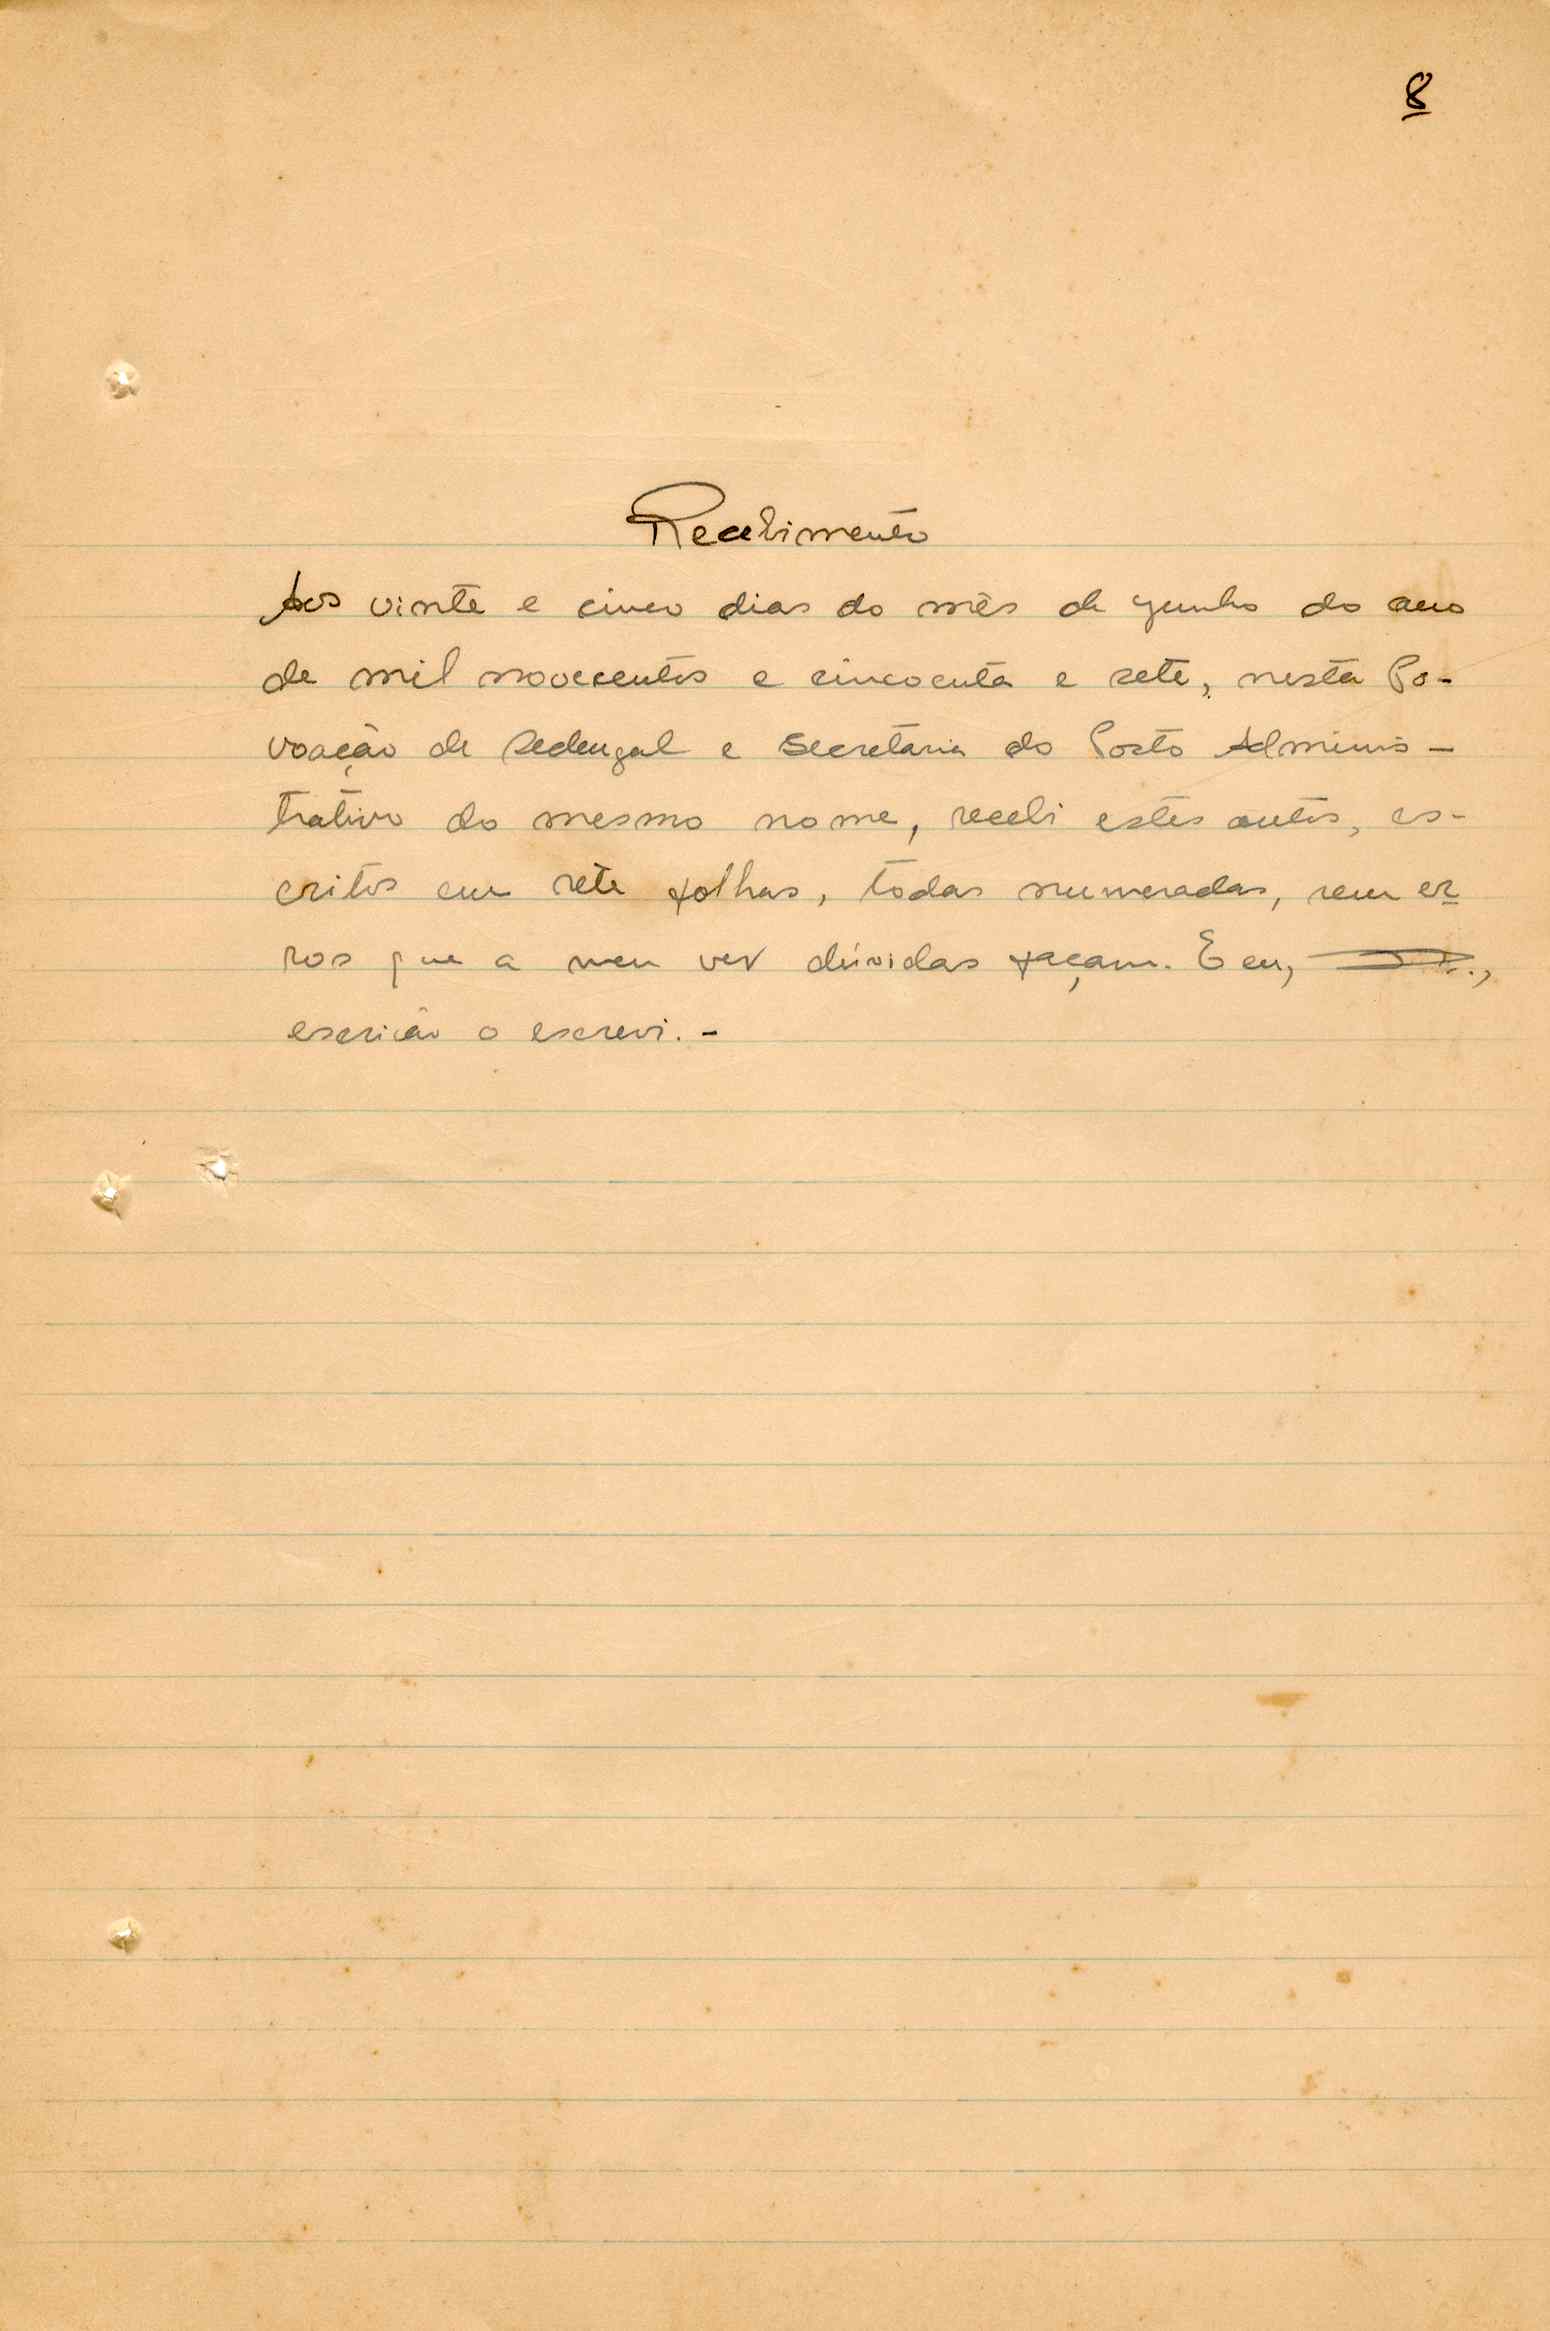 8
Recebimento
Aos vinte e cinco dias do mês de junho do ano
de mil novecentos e cincoenta e sete, nesta Po-
voação de Sedengal e Secretaria do Posto Adminis-
trativo do mesmo nome, recebi estes autos, es-
critos em sete folhas, todas numeradas, sem er
ros que a meu ver dúvidas façam. E eu,
escrivão o escrevi. -